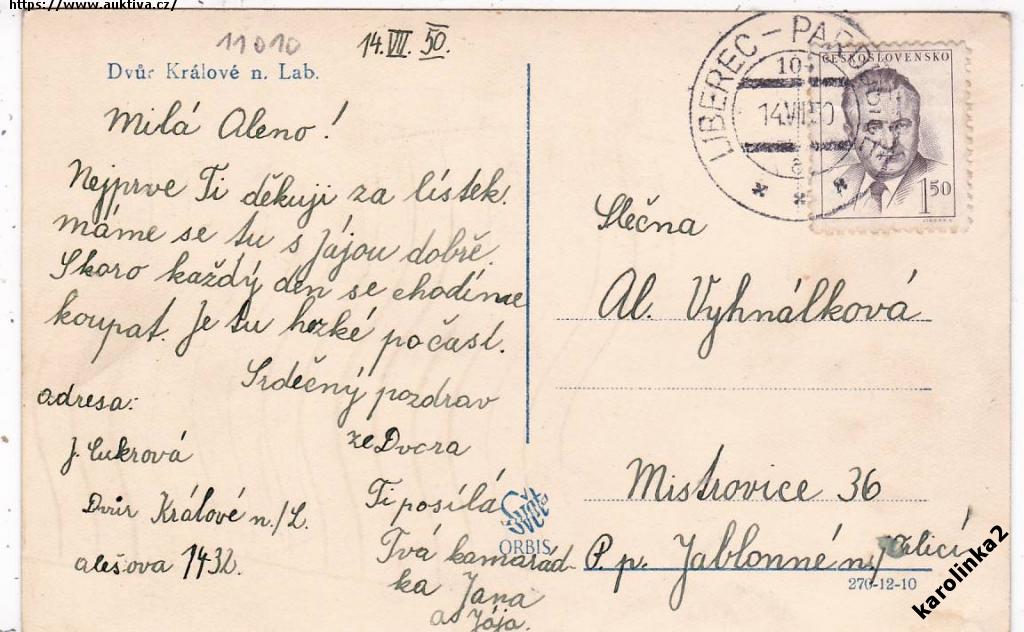 https://www.auktiva.cz/
11010
14.VII.50.
Dvůr Králové n. Lab.
Milá Aleno!
Nejprve Ti děkuji za lístek.
máme se tu s Jájou dobře.
Skoro každý den se chodíme
koupat. Je tu hezké počasí.
Srdečný pozdrav
ze Dvora
Ti posílá
Tvá kamarád-
ka Jana
a Jája.
adresa:
J. Cukrová
Dvůr Králové n./L.
alešova 1432.
Svět
ORBIS
LIBEREC - PARDUBICE
10
14.VII.50
ČESKOSLOVENSKO
1 50
Slečna
Al. Vyhnálková
Mistrovice 36
P. p. Jablonné n/Orlicí
270-12-10
karolinka2